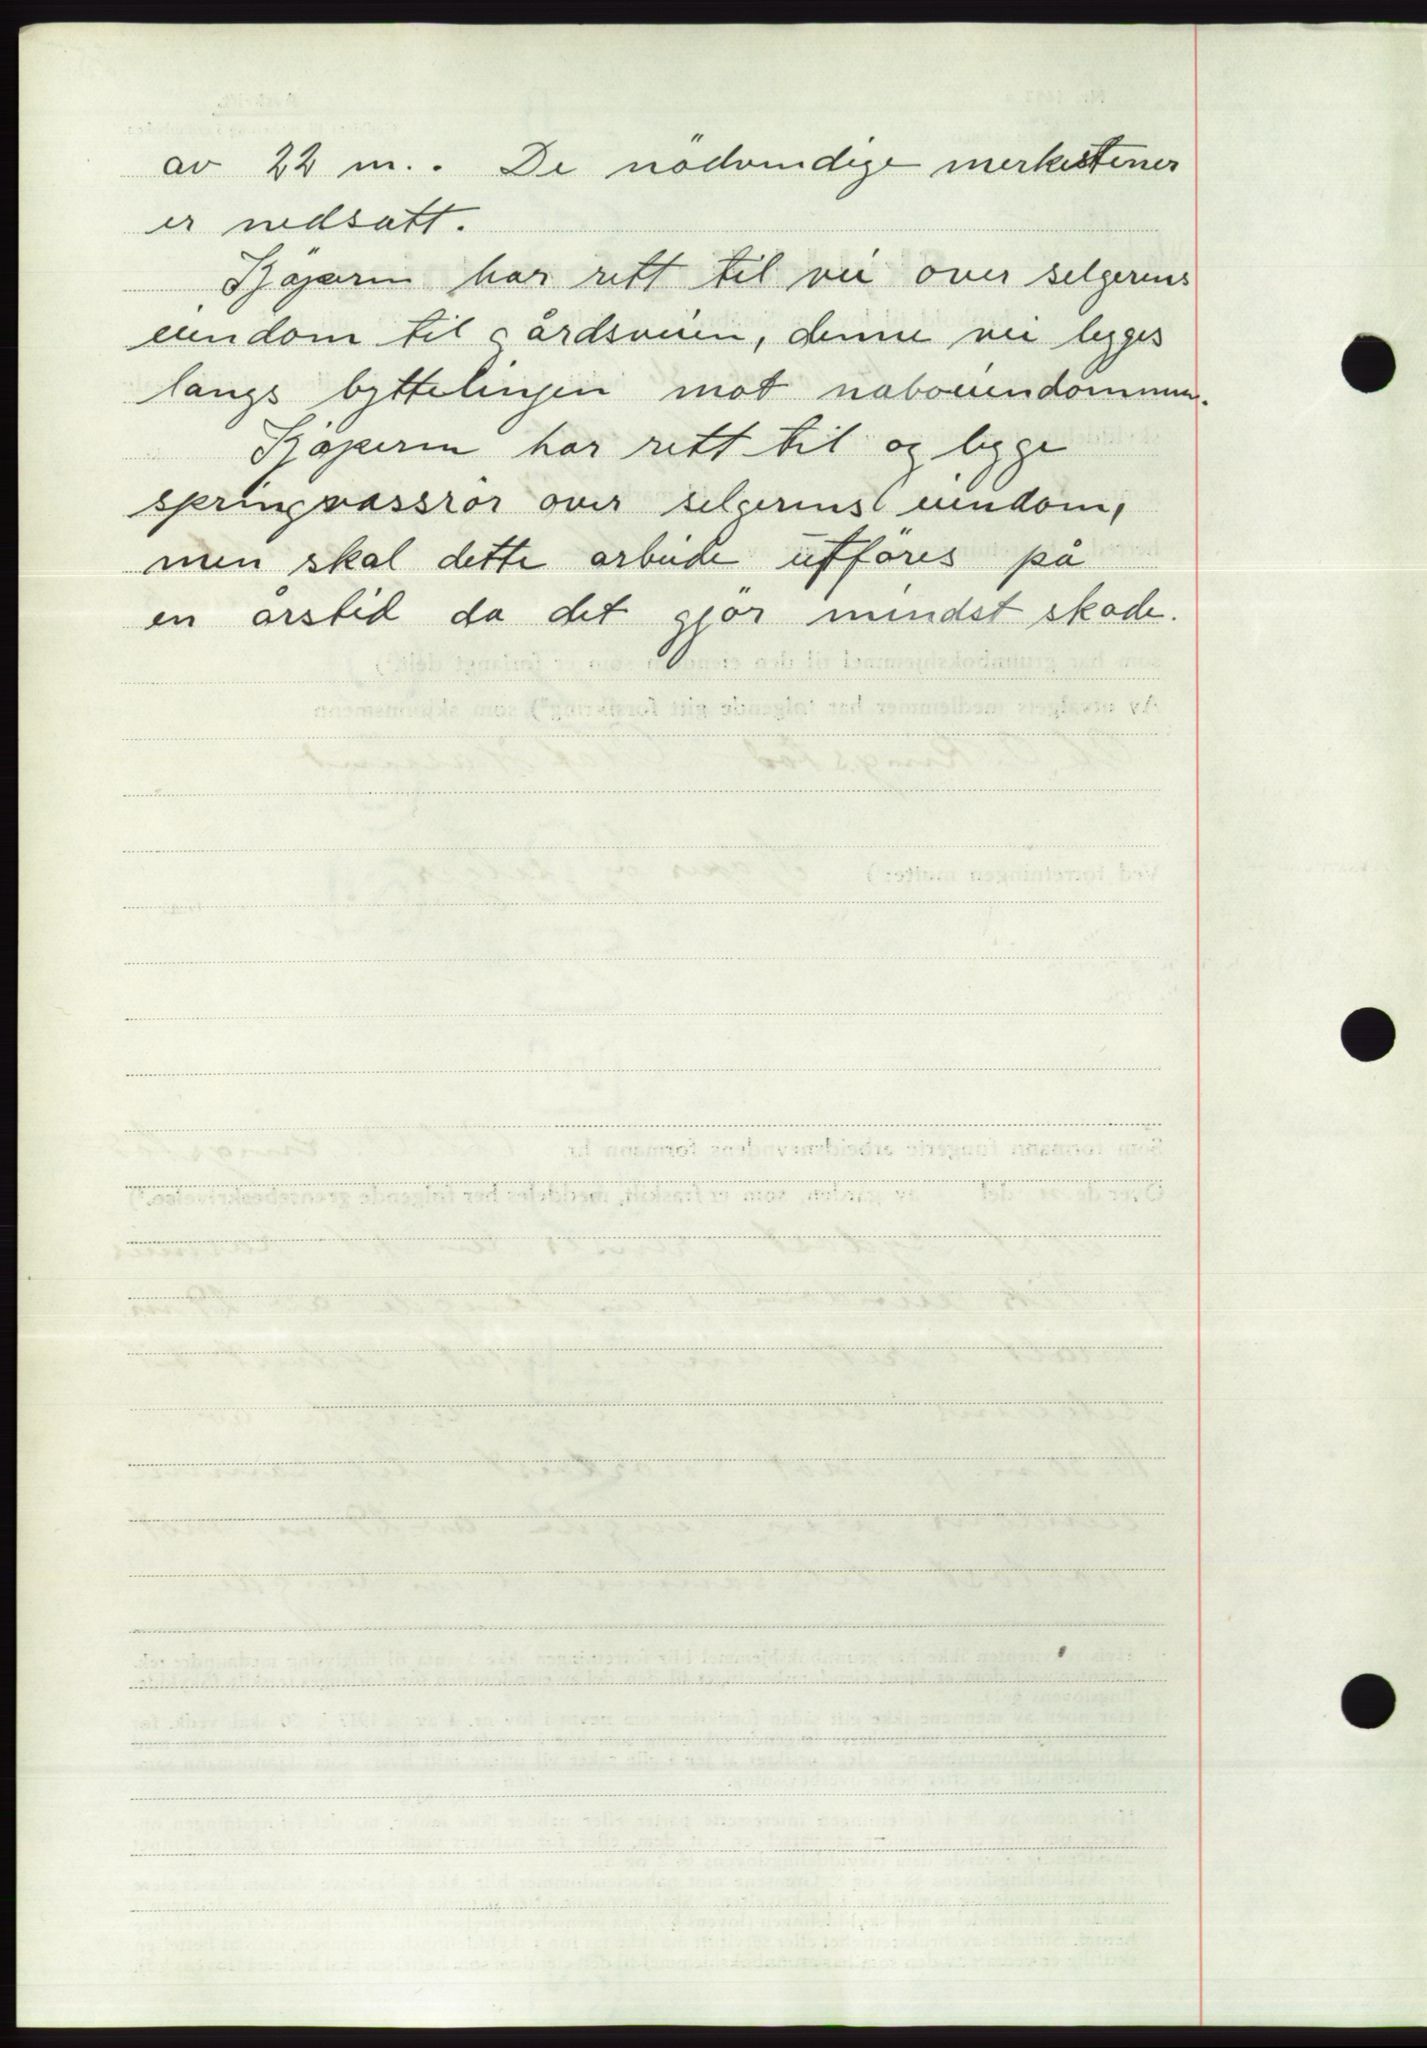 av 22 m.. De nödvendige merkestener
er nedsatt.
Kjöperen har rett til vei over selgerens
eiendom til gårdsveien, denne vei legges
langs byttelinjen mot naboeiendommen.
Kjöperen har rett til og legge
springvassrör over selgerens eiendom,
men skal dette arbeide utföres på
en årstid da det gjör mindst skade.